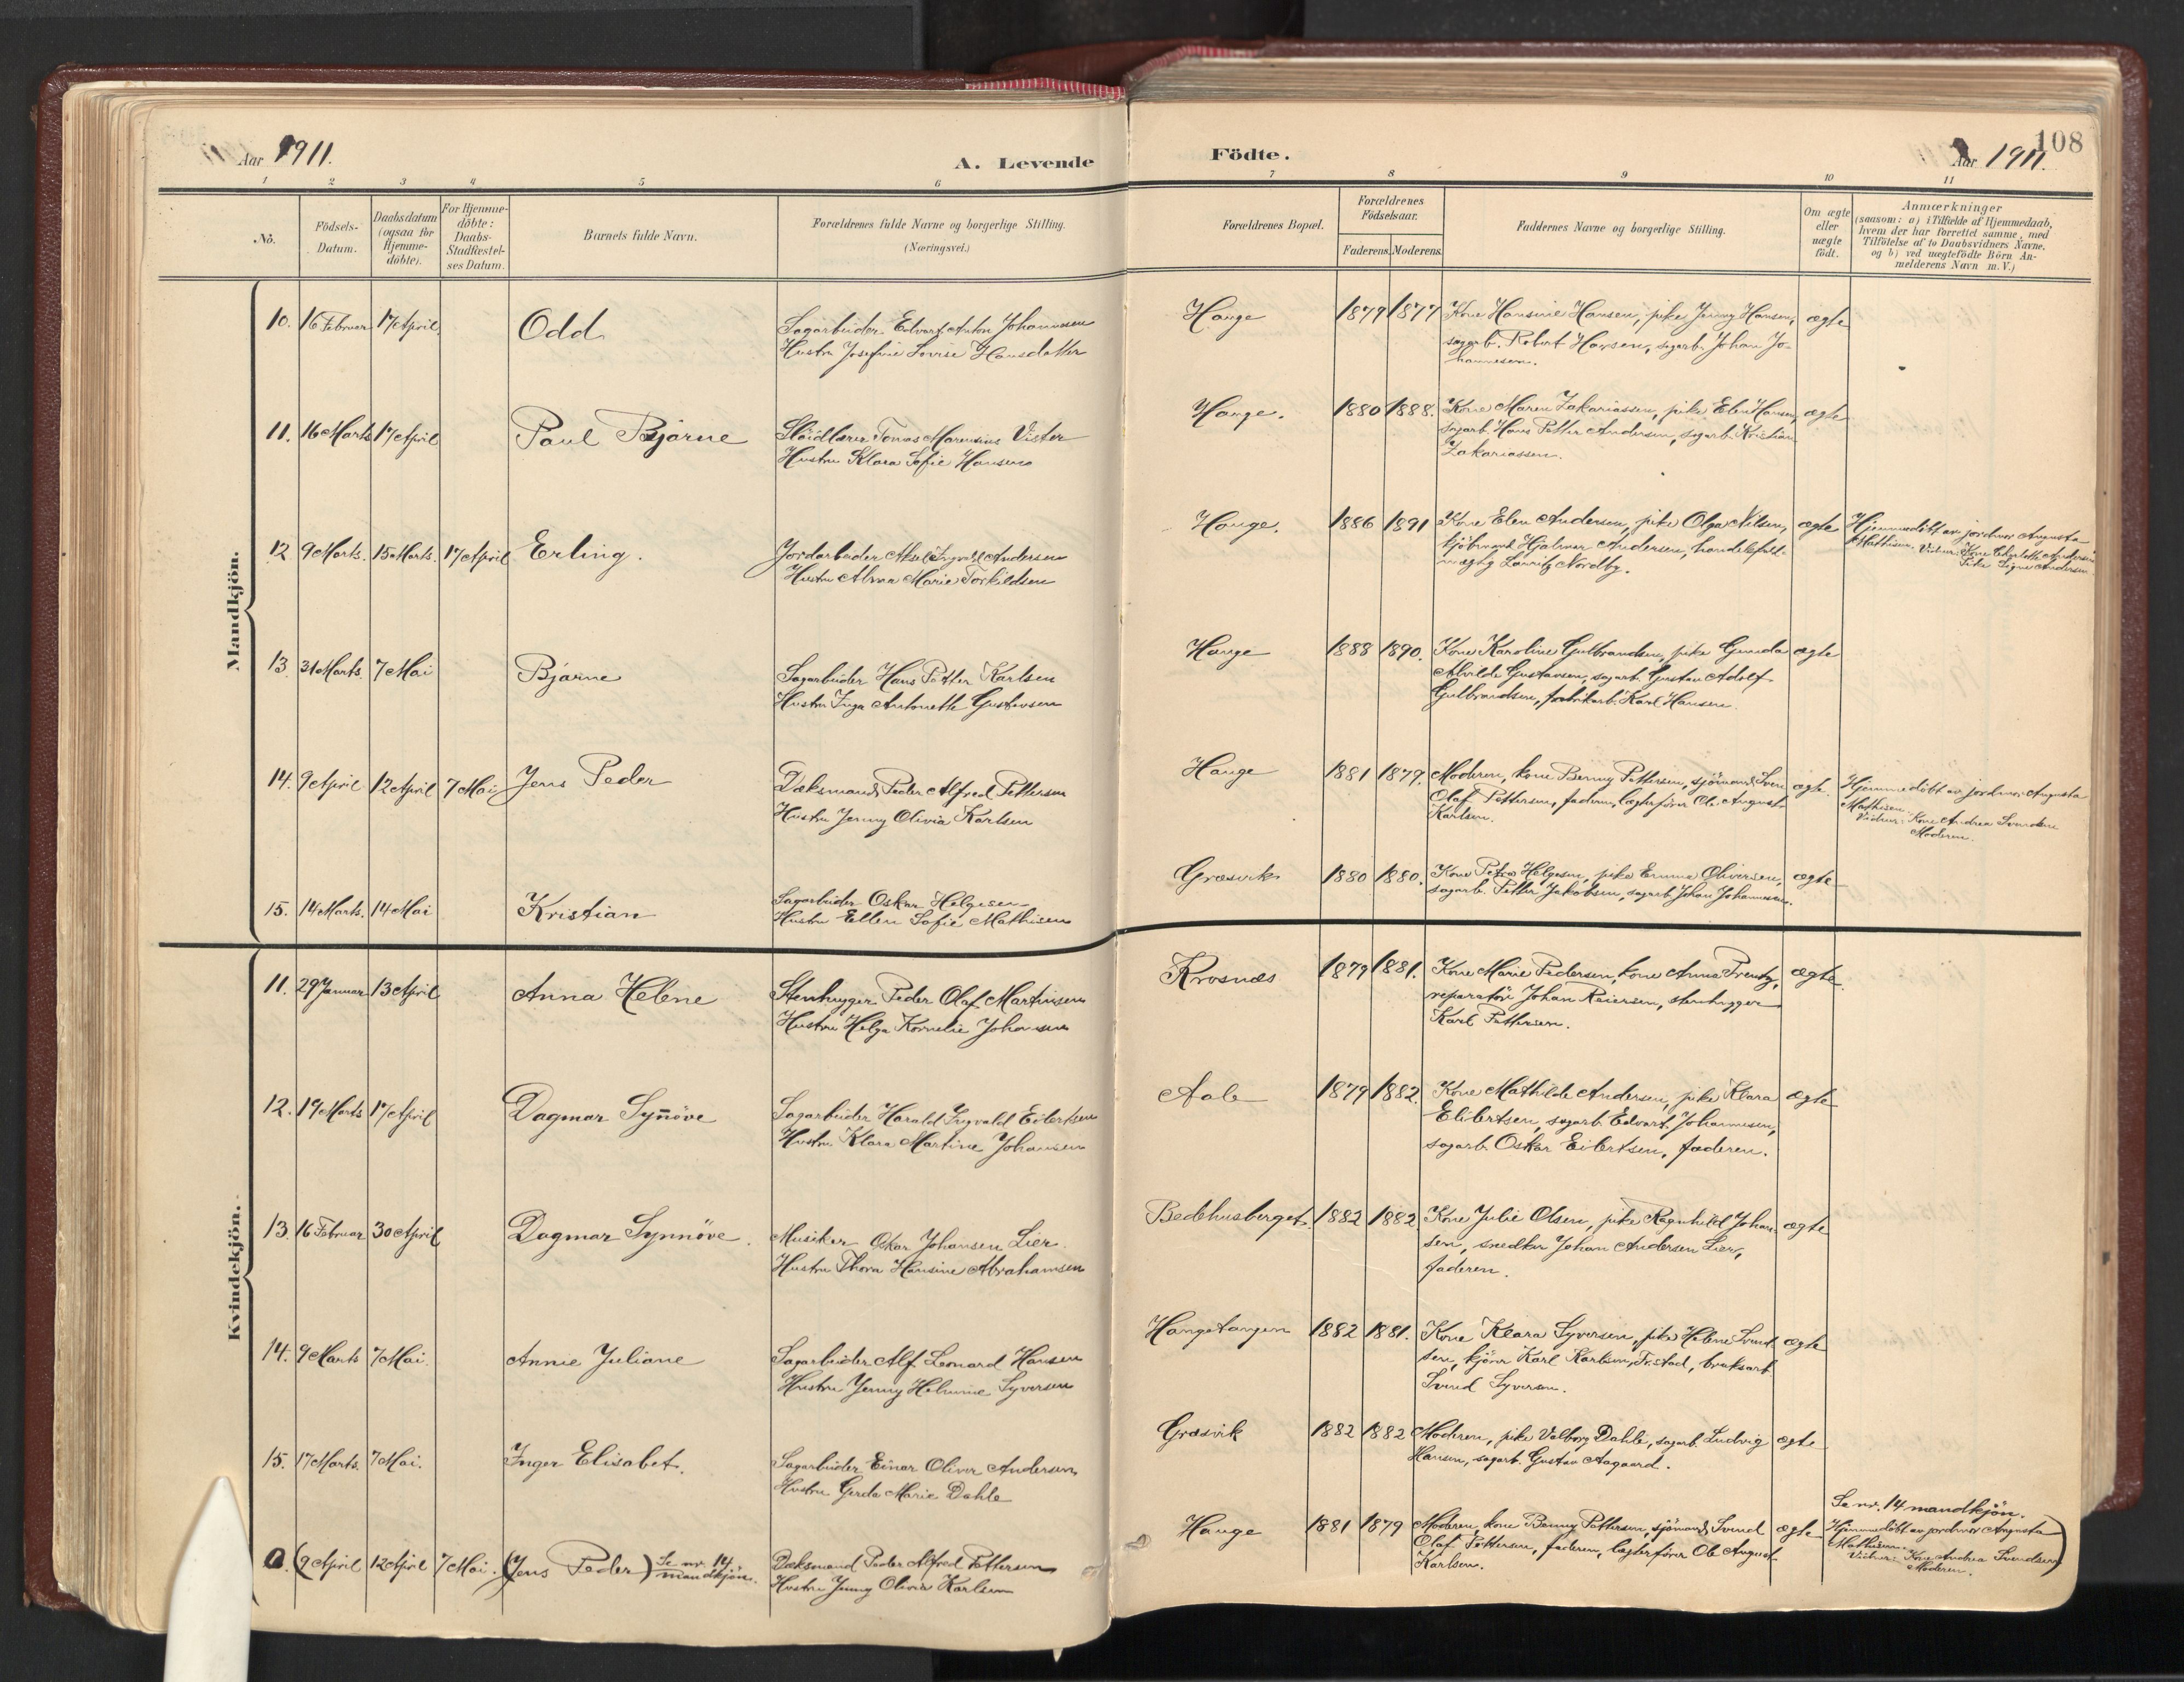 Aar 1911.
A. Levende Födte.
Aar 1911.
108
1 2 3 4 5 6 7 8 9 10 11
No.
Födsels-
Datum.
Daabsdatum
(ogsaa for
Hjemme-
döbte).
For Hjemme-
döbte:
Daabs-
Stadfæstel-
ses Datum.
Barnets fulde Navn.
Forældrenes fulde Navne og borgerlige Stilling.
(Næringsvei.)
Forældrenes Bopæl.
Forældrenes
Födselsaar.
Faderens. Moderens.
Faddernes Navne og borgerlige Stilling.
Om ægte
eller
uægte
födt.
Anmærkninger
(saasom: a) i Tilfælde af Hjemmedaab,
hvem der har forrettet samme, med
Tilföielse af to Daabsvidners Navne,
og b) ved uægtefödte Börn An-
melderens Navn m. V.)
Mandkjön.
10. 16 Februar 17 April. Odd
Sagarbeider Edvart Anton Johannesen
Hustru Josefine Lovise Hansdatter
Hauge 1879 1877 Kone Hansine Hansen, pike Jenny Hansen,
sagarb. Robert Hansen, sagarb. Johan Jo-
hannesen.
ægte
11. 16 Marts 17 April Paul Bjarne
Slöidlærer Tomas Marensius Vister
Hustru Klara Sofie Hansen
Hauge. 1880 1888. Kone Maren Zakariassen, pike Elen Hansen,
sagarb. Hans Petter Andersen, sagarb. Kristian
Zakariassen.
ægte
12 9 Marts. 15 Marts. 17 April Erling.
Jordarbeider Aksel Ingvald Andersen
Hustru Alvina Marie Torkildsen
Hauge. 1886 1891 Kone Elen Andersen, pike Olga Nilsen,
kjöbmand Hjalmar Andersen, handelsfuld-
mægtig Lauritz Nordby.
ægte
Hjemmedöbt av jordmor Augusta
Mathisen. Vidner: Kone Charlotte Andersen
Pike Signe Andersen
13 31 Marts. 7 Mai Bjarne
Sagarbeider Hans Petter Karlsen
Hustru Inga Antonette Gustavsen
Hauge 1888 1890. Kone Karoline Gulbrandsen, pike Gunda
Alvilde Gustavsen, sagarb. Gustav Adolf
Gulbrandsen, fabrikarb. Karl Hansen.
ægte
14. 9 April 12 April 7 Mai Jens Peder
Dæksmand Peder Alfred Pettersen
Hustru Jenny Olivia Karlsen
Hauge 1881 1879. Moderen, kone Benny Pettersen, sjömand Svend
Olaf Pettersen, faderen, lægterförer Ole August
Karlsen.
ægte.
Hjemmedöbt av jordmor Augusta
Mathisen.
Vidner: Kone Andrea Svendsen
Moderen.
15. 14 Marts. 14 Mai Kristian
Sagarbeider Oskar Helgesen
Hustru Ellen Sofie Mathisen
Græsvik 1880 1880. Kone Petra Helgesen, pike Emma Oliversen,
sagarb. Petter Jakobsen, sagarb. Johan Johannesen.
ægte
Kvindekjön.
11. 29 Januar 13 April Anna Helene
Stenhugger Peder Olaf Martinsen
Hustru Helga Kornelie Johansen
Krosnæs 1879 1881. Kone Marie Pedersen, kone Anna Frentz,
reparatör Johan Reiersen, stenhugger
Karl Pettersen.
ægte.
12. 19 Marts 17 April Dagmar Synöve
Sagarbeider Harald Ingvald Eilertsen
Hustru Klara Martine Johansen
Aale 1879 1882. Kone Mathilde Andersen, pike Klara
Eilertsen, sagarb. Edvart Johannesen,
sagarb. Oskar Eilertsen, faderen.
ægte
13. 16 Februar 30 April Dagmar Synnöve.
Musiker Oskar Johansen Lier.
Hustru Thora Hansine Abrahamsen
Bedehusberget. 1882 1882. Kone Julie Olsen, pike Ragnhild Johan-
sen, snedker Johan Andersen Lier,
faderen.
ægte
14. 9 Marts 7 Mai. Annie Juliane
Sagarbeider Alf Leonard Hansen
Hustru Jenny Helmine Syversen
Haugetangen 1882 1881. Kone Klara Syversen, pike Helene Svend-
sen, kjörer Karl Karlsen, Fr.stad, bruksarb.
Svend Syversen.
ægte
15. 17 Marts. 7 Mai. Inger Elisabet.
Sagarbeider Einar Oliver Andersen
Hustru Gerda Marie Dahle
Græsvik 1882 1882 Moderen, pike Valborg Dahle, sagarb. Ludvig
Hansen, sagarb. Gustav Aagaard.
ægte
0. (9 April 12 April 7 Mai. (Jens Peder) Se nr. 14
mandkjön.
Dæksmand Peder Alfred Pettersen
Hustru Jenny Olivia Karlsen
Hauge 1881 1879 Moderen, kone Benny Pettersen, sjömand Svend
Olaf Pettersen, faderen, lægterförer Ole August
Karlsen.
ægte
Se nr. 14 mandkjön.
Hjemmedöbt av jordmor Augusta
Mathisen.
Vidner: Kone Andrea Svendsen
Moderen.)